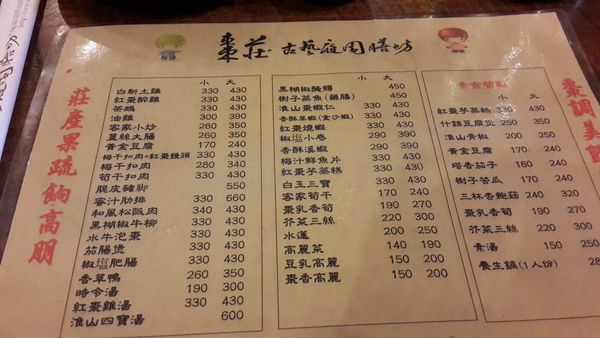 棗莊 古藝庭園膳坊
莊產果蔬餉高朋
小 大
白斬土雞 330 430
紅棗醉雞 330 430
茶鵝 330 430
油雞 310 390
客家小炒 260 350
薑絲大腸 260 350
黃金豆腐 170 240
梅干扣肉+紅棗饅頭 330 430
梅干扣肉 280 340
筍干扣肉 330 430
脆皮豬腳 550
蜜汁肋排 330 660
和風松阪肉 340 430
黑胡椒牛柳 330 430
水牛泡棗 330 430
茄腸煲 330 430
椒塩肥腸 330 430
香草鴨 260 350
時令湯 190 300
紅棗雞湯 330 430
淮山四寶湯 600
小 大
黑胡椒 450
樹子蒸魚 450
淮山棗蝦仁 330 430
香酥草蝦(金沙蝦) 330 430
紅棗燒蝦 330 430
椒塩小卷 330 430
香酥溪蝦 330 430
梅汁鮮魚片 330 430
紅棗芋茶糕 330 430
白玉三寶 330 430
客家筍干 170 240
棗乳香筍 190 270
芥菜三絲 220 300
水蓮 200 270
高麗菜 140 190
豆乳高麗 150 200
棗香高麗 150 200
素食餐點
紅棗芋茶糕 330
什錦豆腐煲
淮山青椒 200
黃金豆腐 170
塔香茄子 160 240
樹子苦瓜 170 240
三杯杏鮑菇 240 320
棗乳香筍 190 270
芥菜三絲 220 300
素湯 150 250
養生鍋(1人份) 28
棗調美